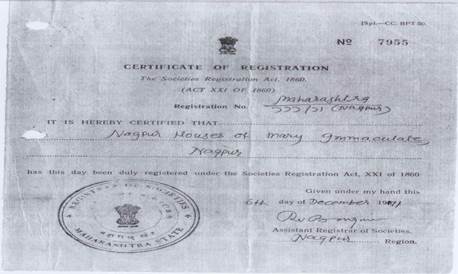 Spl.—CC. RPT 80.
Nº 7955
CERTIFICATE OF REGISTRATION
The Societies Registration Act, 1860.
(ACT XXI OF 1860)
Maharashtra
Registration No. /71 (Nagpur)
IT IS HEREBY CERTIFIED THAT
Nagpur Houses of Mary Immaculate,
Nagpur
has this day been duly registered under the Societies Registration Act, XXI of 1860
Given under my hand this
6th day of December 1971
Assistant Registrar of Societies.
Nagpur Region.
REGISTRAR OF SOCIETIES
MAHARASHTRA STATE